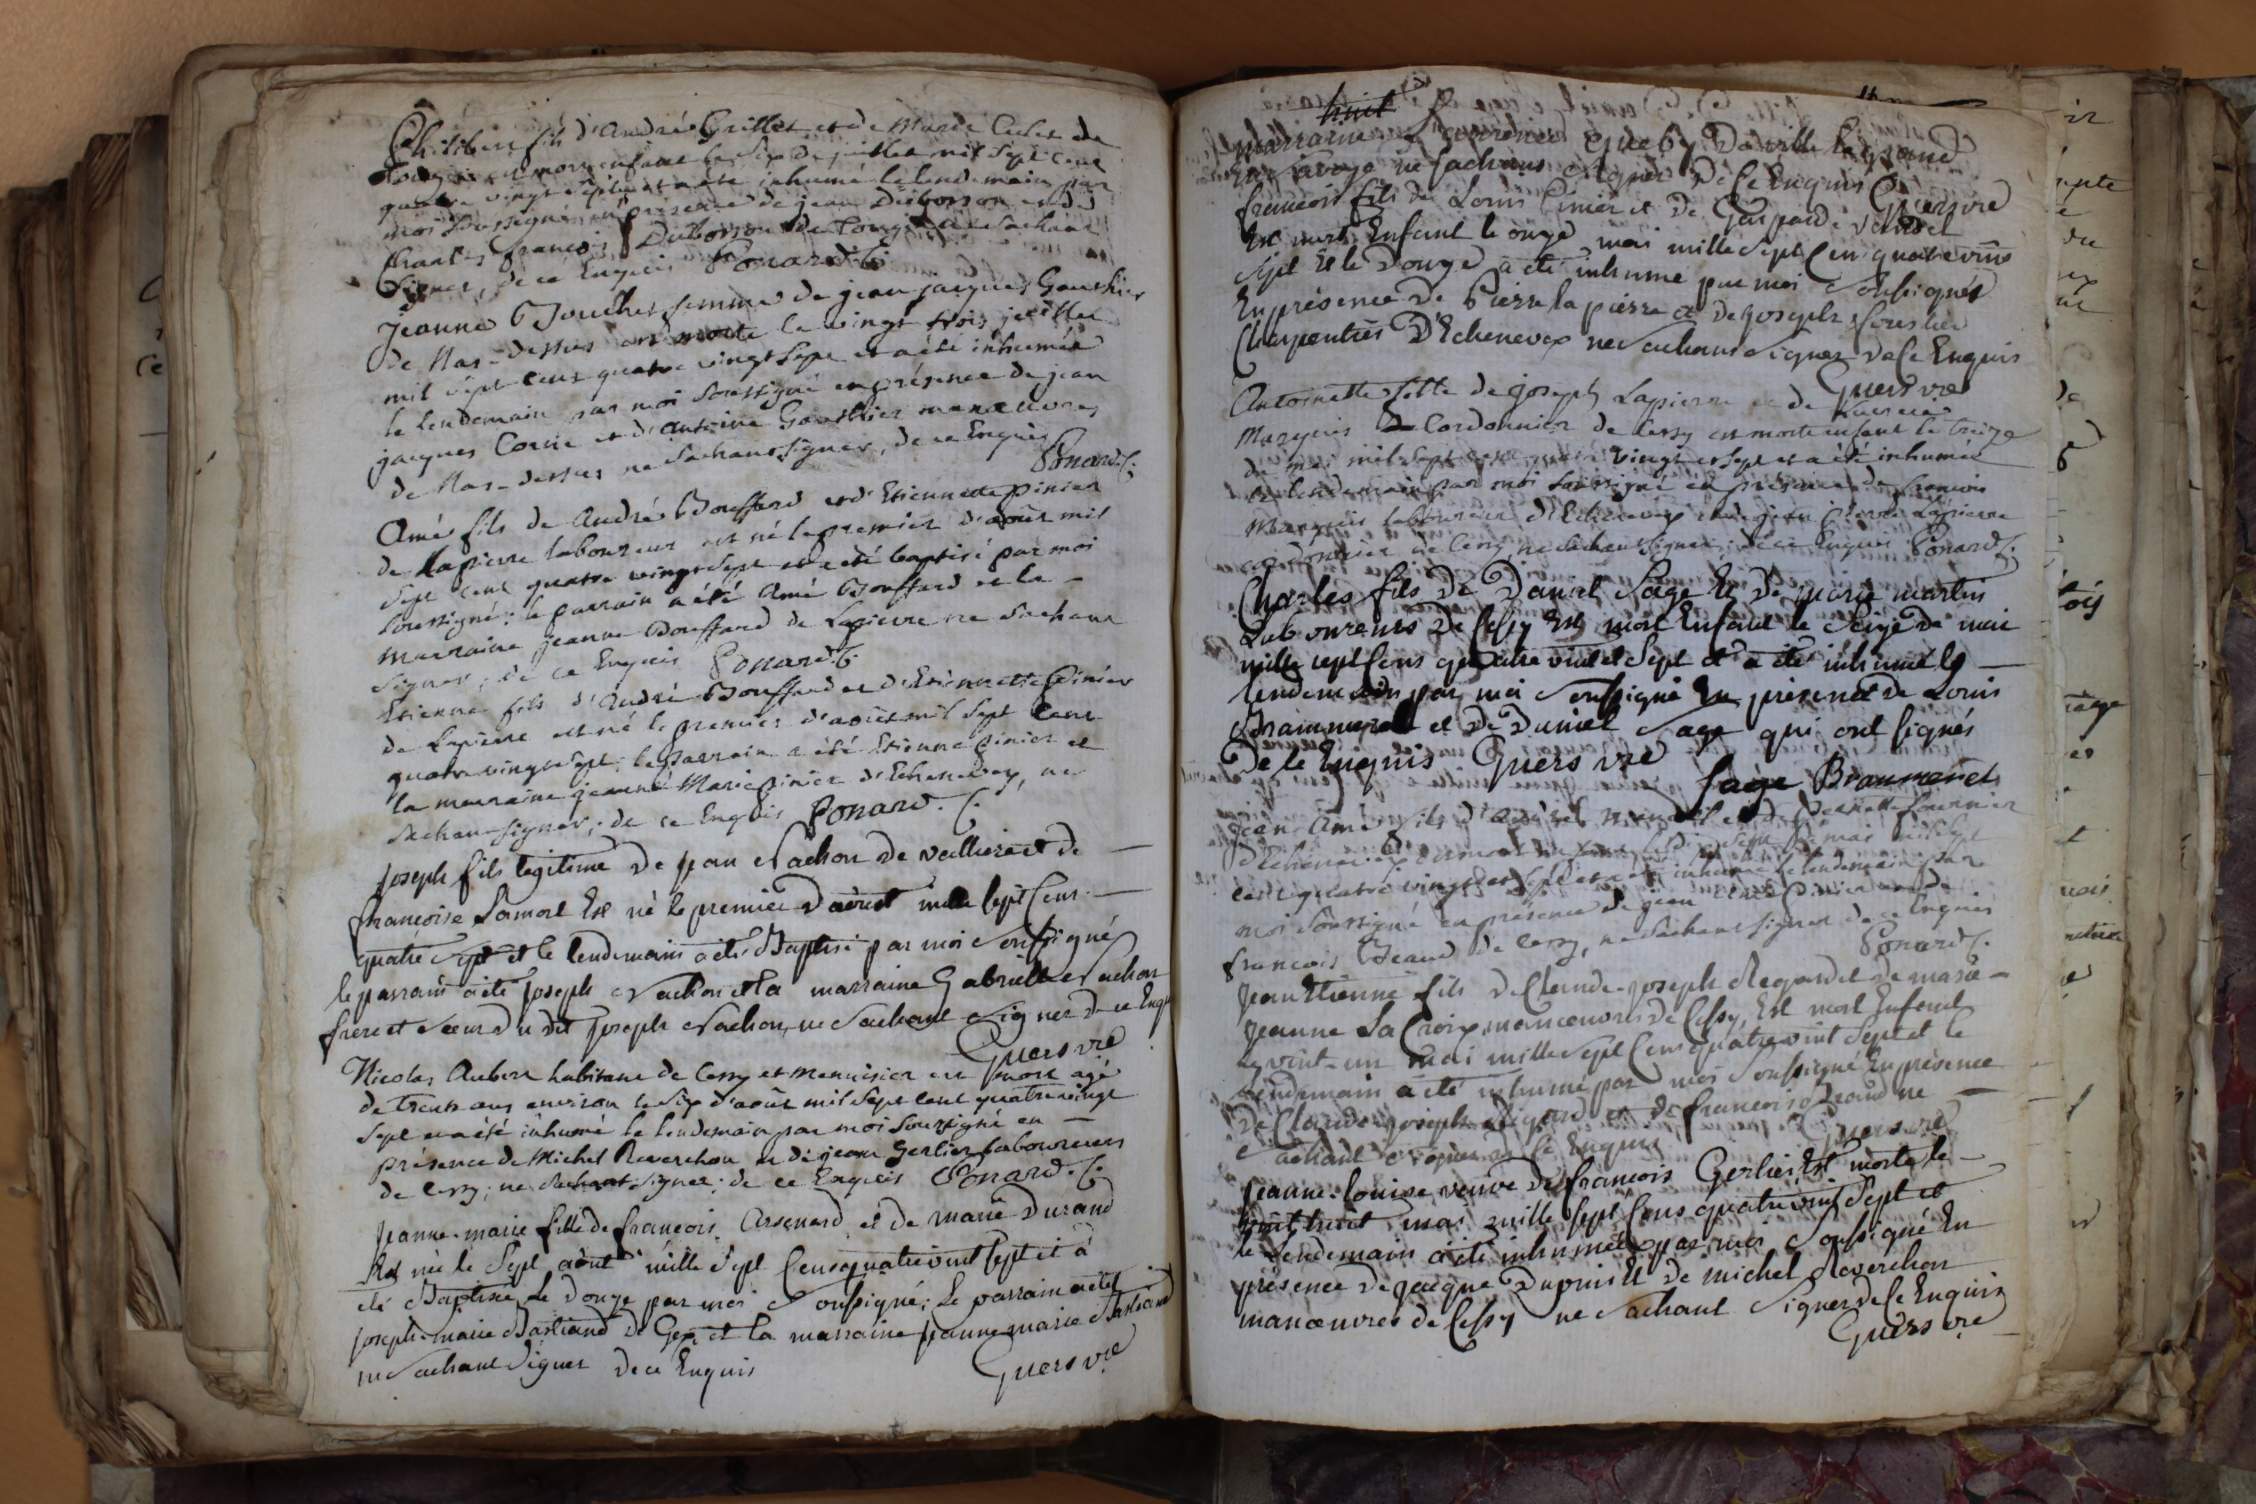 Philibert fils d'André Grillet et de Marie Cachet de
Tougin est mort enfant le six de juillet mil sept cent
quatre vingt sept et a été inhumé le lendemain par
moi soussigné en présence de jean Duborson et de
Charles françois Duborson de Tougin ne Sachant
Signer, de ce Enquis Ponard. C.
Jeanne femme de jean jacques Gauthier
de Mas-dessus est morte le vingt trois juillet
mil sept cent quatre vingt sept et a été inhumée
le lendemain par moi soussigné en présence de jean
jacques Cornu et d'antoine Gauthier manœuvres
de Mas-dessus ne Sachant signer, de ce Enquis
Ponard. C.
Amé fils de André Bouffard et d'Etiennette pinier
de Lapierre laboureur est né le premier d'août mil
sept cent quatre vingt sept et a été baptisé par moi
soussigné; le parrain a été Amé Bouffard et la
marraine jeanne Bouffard de Lapierre ne Sachant
signer; de ce Enquis Ponard. C.
Etienne fils d'André Bouffard et d'Etiennette pinier
de Lapierre est né le premier d'août mil sept cent
quatre vingt sept; le parrain a été Etienne pinier et
la marraine jeanne Marie pinier d'Echenevex, ne
Sachant signer; de ce Enquis Ponard. C.
joseph fils légitime de jean Nachon de et de
françoise Lamort Est né le premier D'aoust mille sept Cens
quatre Sept et le lendemain a été Baptisé par moi Soussigné
le parrain a été joseph Nachon et la marraine Gabrielle Nachon
frere et Soeur du dit joseph Nachon, ne Sachant Signer de ce Enquis
Guers vre
Nicolas Aubert habitant de Cessy et menuisier est mort agé
de trente ans environ le six d'août mil sept cent quatre vingt
sept et a été inhumé le lendemain par moi soussigné en
présence de Michel Reverchon et de jean Gerlier laboureurs
de Cessy; ne Sachant signer; de ce Enquis Ponard. C.
Jeanne-marie fille de françois Arsenard et de marie Durand
Est née le Sept août mille Sept Cens quatre vint Sept et a
été Baptisé Le Douze par moi Soussigné; Le parrain a été
joseph-marie Bastiand de Gex et la marraine jeanne marie Bastiand
ne Sachant Signer de ce Enquis Guers vre
huit
marraine de ville la grand
En Savoye ne Sachans Signer De Ce Enquis Guers vre
françois fils de Louis Pinier et de Gaspard
Est mort Enfant le onze mai mille Sept Cens quatre vint
Sept Et le Douze a été inhumé par moi Soussigné
En présence De Pierre la pierre et de joseph fournier
Charpentiers D'Echenevex ne Sachans Signer De Ce Enquis
Guers vre
Antoinette fille de joseph Lapierre et de
Marquis Cordonnier de Cessy est morte enfant le treize
de mai mil sept cent quatre vingt et sept et a été inhumée
le lendemain par moi soussigné en présence de françois
Marquis laboureur d'Echenevex et de jean Pierre Lapierre
cordonnier de Cessy, ne Sachant signer; de ce Enquis Ponard C.
Charles fils De Daniel Sage Et De marie martin
Laboureurs De Cessy Est mort Enfant le Seize De mai
mille sept Cens quatre vint et Sept et a été inhumé le
lendemain par moi Soussigné En présence De Louis
Brammerel et De Daniel Sage qui ont signés
De Ce Enquis Guers vre
Sage Brammerel
jean Amé fils d'André et de pernette fournier
d'Echenevex est mort enfant le dix sept de mai mil sept
cent quatre vingt et sept et a été inhumé le lendemain par
moi soussigné en présence de jean Pinier et de
françois Béaud de Cessy, ne Sachant signer de ce Enquis
Ponard C.
Jean Etienne fils De Claude-joseph Regard et de marie
jeanne La Croix manœuvres de Cessy, Est mort Enfant
le vint-un mai mille Sept Cens quatre vint Sept et le
lendemain a été inhumé par moi Soussigné En présence
De Claude joseph Regard et de françois Béaud ne
Sachant Signer De Ce Enquis Guers vre
Jeanne-louise veuve De françois Gerlier Est morte le
vint huit mai mille Sept Cens quatre vint Sept et
le Lendemain a été inhumée par moi Soussigné En
présence De jacque Dupuis Et De michel Reverchon
manœuvres de Cessy ne Sachant Signer De Ce Enquis
Guers vre